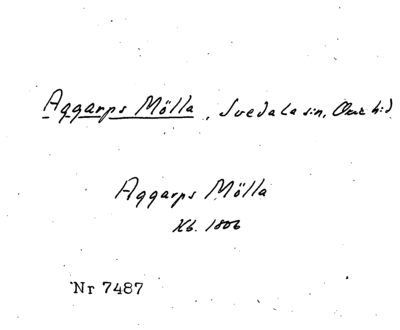 Aggarps Mölla, Svedala sn, Oxie hd
Aggarps Mölla
Kb. 1806
Nr 7487